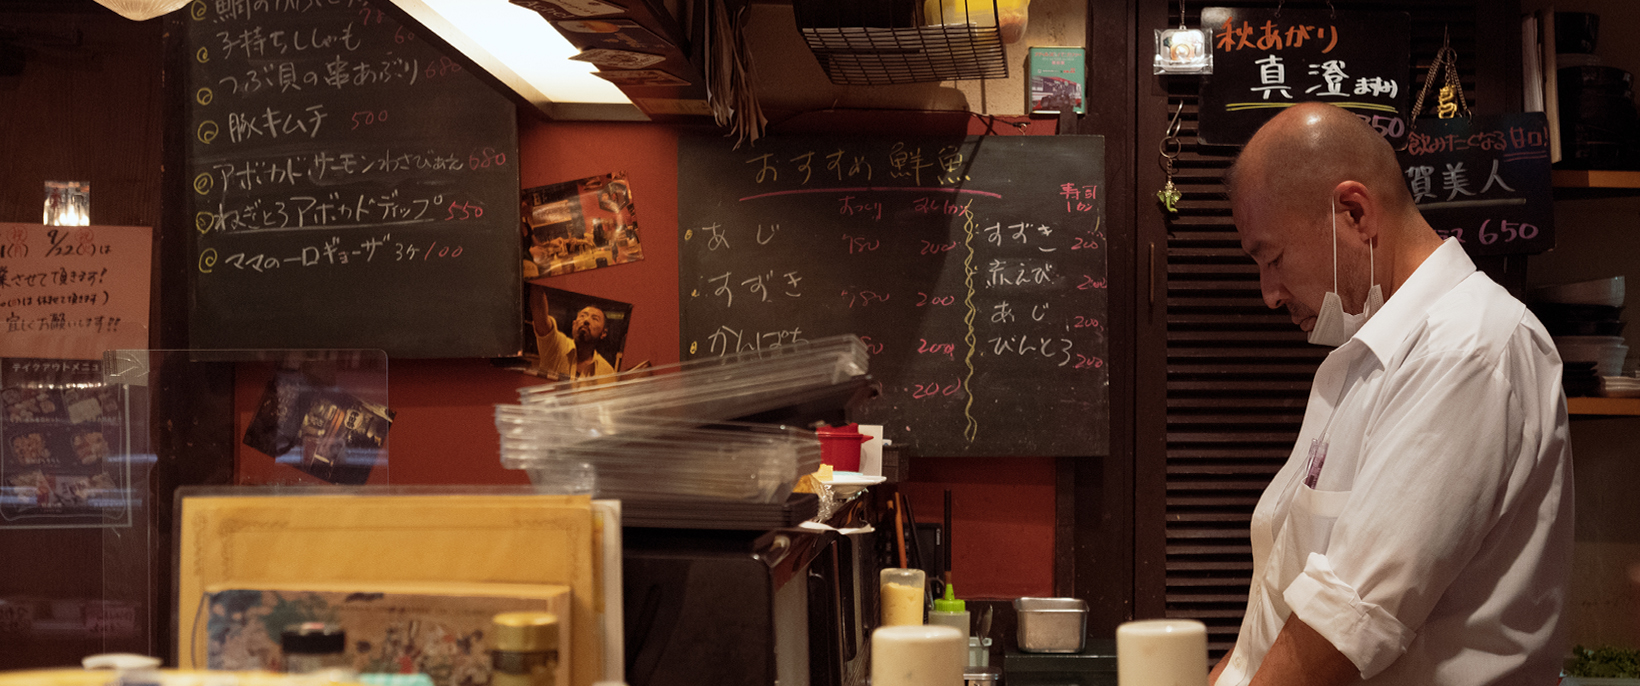 子持ちししゃも 60
つぶ貝の串あぶり 680
豚キムチ 500
アボカドサーモンわさびあえ 680
ねぎとろアボカドディップ 550
ママの一口ギョーザ 3ケ 100
9/22 は
業させて頂きます!
は休ませて頂きます)
宜しくお願いします!!
テイクアウトメニュ
おすすめ鮮魚
おつくり
あじ 780 200
すずき 780 200
かんぱち 200
200
寿司
1カン
すずき 200
赤えび 200
あじ 200
びんとろ 200
秋あがり
真澄 ますみ
850
飲みたくなる甘口!
賀美人
650